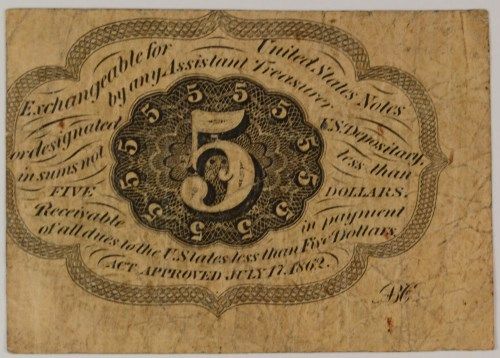 Exchangeable for United States Notes
by any Assistant Treasurer
or designated U.S. Depositary,
in sums not less than
FIVE DOLLARS.
Receivable in payment
of all dues to the U.States less than Five Dollars
ACT APPROVED JULY 17, 1862.
5
5 5 5 5 5 5 5 5 5 5 5
ABC